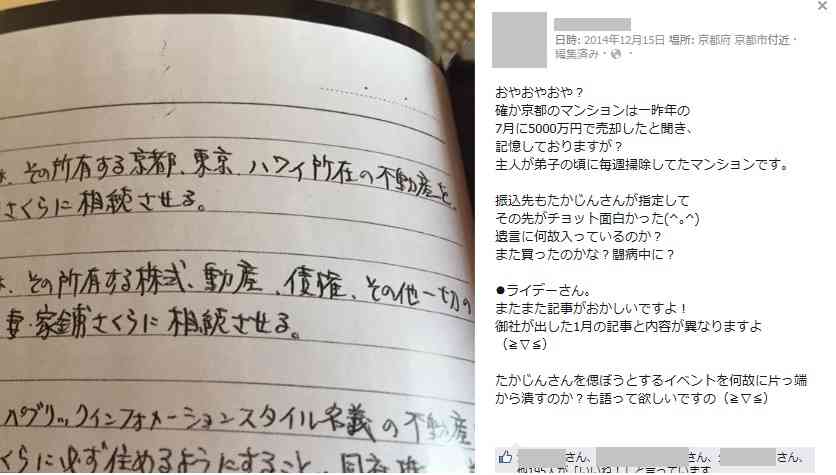 は、その所有する京都、東京、ハワイ所在の不動産を、
さくらに相続させる。
は、その所有する株式、動産、債権、その他一切の
妻・家鋪さくらに相続させる。
パブリックインフォメーションスタイル名義の不動産
くらに必ず住めるようにすること。
日時: 2014年12月15日 場所: 京都府 京都市付近・
編集済み・
おやおやおや？
確か京都のマンションは一昨年の
7月に5000万円で売却したと聞き、
記憶しておりますが？
主人が弟子の頃に毎週掃除してたマンションです。
振込先もたかじんさんが指定して
その先がチョット面白かった(^｡^)
遺言に何故入っているのか？
また買ったのかな？闘病中に？
●ライデーさん。
またまた記事がおかしいですよ！
御社が出した1月の記事と内容が異なりますよ
（≧▽≦）
たかじんさんを偲ぼうとするイベントを何故に片っ端
から潰すのか？も語って欲しいですの（≧▽≦）
さん、 さん、 さん、
他195人が「いいね！」と言っています